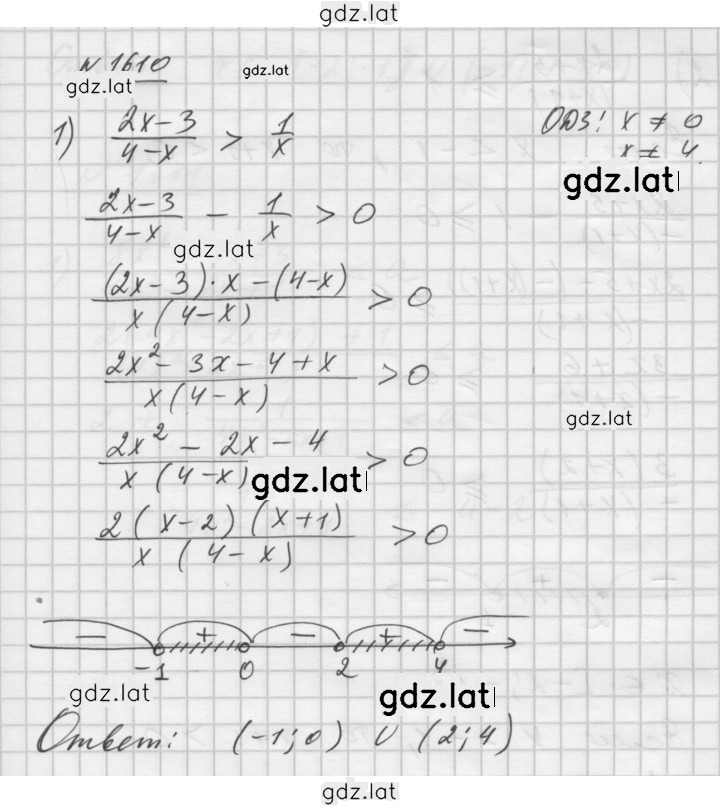 gdz.lat
N 1610
gdz.lat gdz.lat
1) (2x-3)/(4-x) > 1/x ОДЗ! x ≠ 0
x ≠ 4
gdz.lat
(2x-3)/(4-x) - 1/x > 0
gdz.lat
((2x-3)·x-(4-x))/(x(4-x)) > 0
(2x²-3x-4+x)/(x(4-x)) > 0
gdz.lat
(2x²-2x-4)/(x(4-x)) > 0
gdz.lat
(2(x-2)(x+1))/(x(4-x)) > 0
- + - + -
-1 0 2 4
gdz.lat gdz.lat
Ответ: (-1;0) ∪ (2;4)
gdz.lat